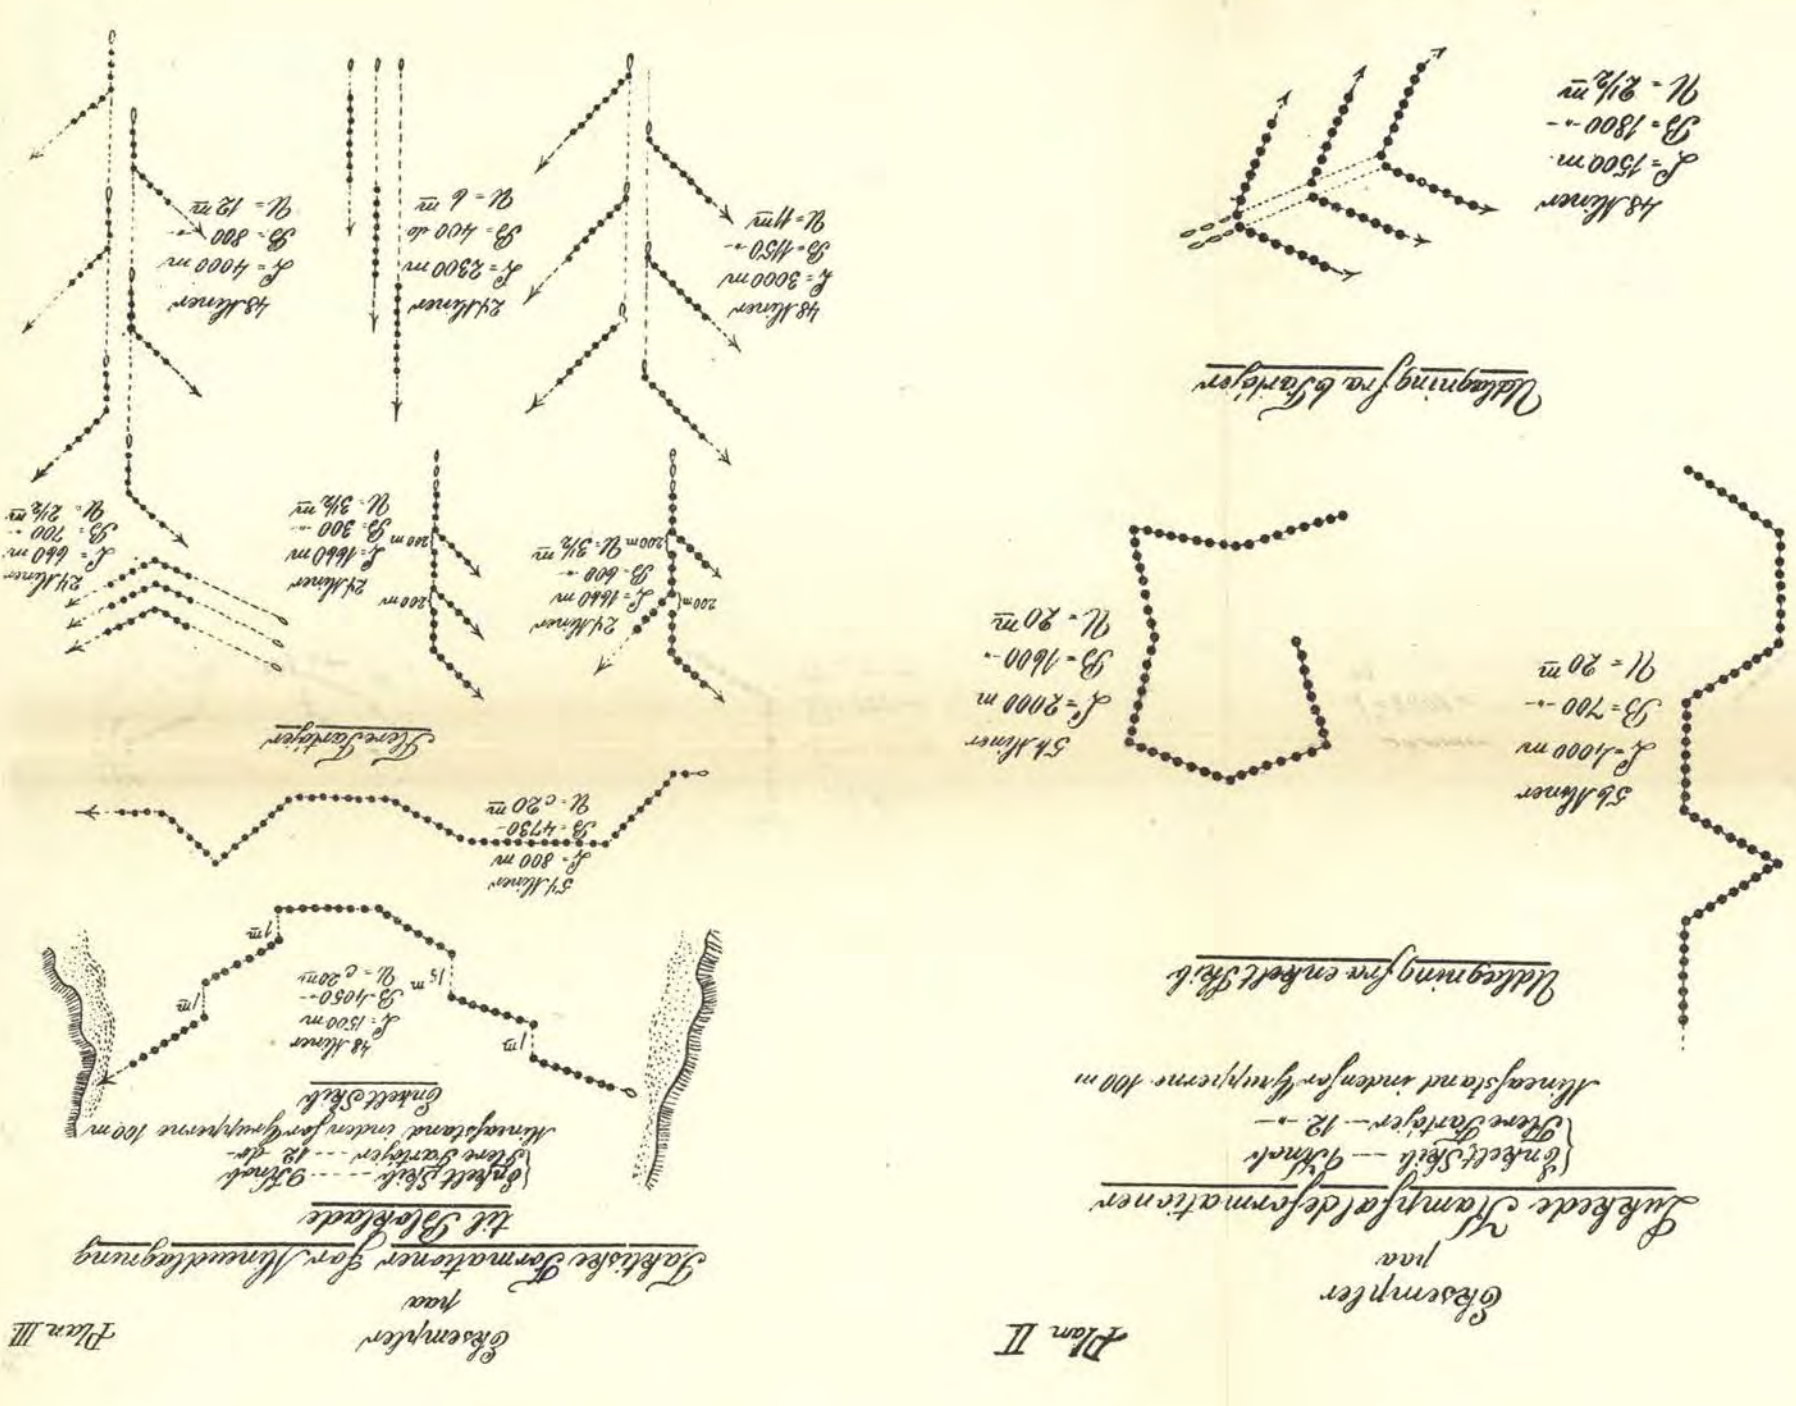 Plan II
Eksempler
paa
Lukkede Kampfaldeformationer
{Enkelt Skib --- 9 Knob
{Flere Fartøjer --- 12 -"-
Mineafstand indenfor Grupperne 100 m
Udlægning fra enkelt Skib
56 Miner
L = 4000 m
B = 700 -"-
U = 20 m
54 Miner
L = 2000 m
B = 1600 -"-
U = 20 m
Udlægning fra 6 Fartøjer
48 Miner
L = 1500 m
B = 1800 -"-
U = 2½ m
Plan III.
Eksempler
paa
Taktiske Formationer for Mineudlægning
til Blokade
{Enkelt Skib ---- 9 Knob
{Flere Fartøjer ---- 12 do
Mineafstand indenfor Grupperne 100 m
Enkelt Skib
48 Miner
L = 1500 m
B = 4050 -"-
U = c 20 m
1 m
1,5 m
1 m
1 m
54 Miner
L = 800 m
B = 4730 -
U = c 20 m
Flere Fartøjer
24 Miner
L = 1660 m
B = 600 -"-
U = 3½ m
200 m
200 m
24 Miner
L = 1660 m
B = 300 -"-
U = 3½ m
200 m
200 m
24 Miner
L = 660 m
B = 700 -"-
U = 2½ m
48 Miner
L = 3000 m
B = 1150 -"-
U = 11 m
24 Miner
L = 2300 m
B = 400 do
U = 6 m
48 Miner
L = 4000 m
B = 800 -"-
U = 12 m